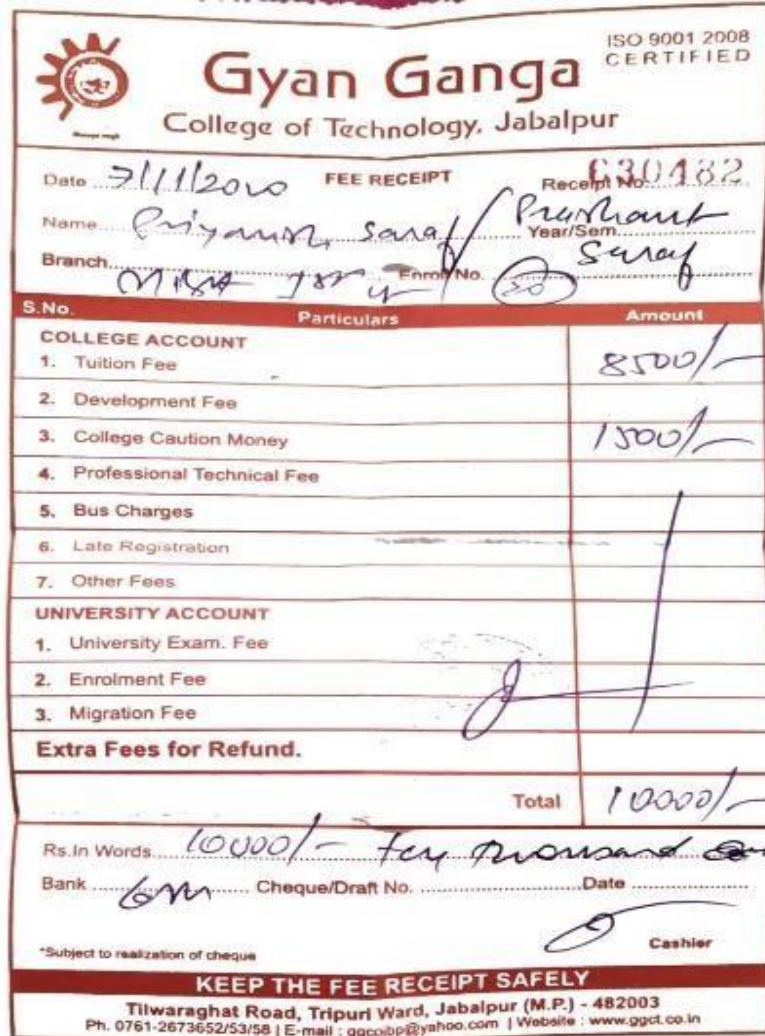 ISO 9001 2008
CERTIFIED
Gyan Ganga
College of Technology, Jabalpur
Date 7/11/2020 FEE RECEIPT Receipt No. 630482
Name Priyansh Saraf / Prashant
Year/Sem.
Saraf
Branch MBA Enrol No.
S.No. Particulars Amount
COLLEGE ACCOUNT
1. Tuition Fee 8500/-
2. Development Fee
3. College Caution Money 1500/-
4. Professional Technical Fee
5. Bus Charges
6. Late Registration
7. Other Fees
UNIVERSITY ACCOUNT
1. University Exam. Fee
2. Enrolment Fee
3. Migration Fee
Extra Fees for Refund.
Total 10000/-
Rs.In Words 10000/- Ten thousand
Bank Cheque/Draft No. Date
*Subject to realization of cheque Cashier
KEEP THE FEE RECEIPT SAFELY
Tilwaraghat Road, Tripuri Ward, Jabalpur (M.P.) - 482003
Ph. 0761-2673652/53/58 | E-mail : ggcojbp@yahoo.com | Website : www.ggct.co.in